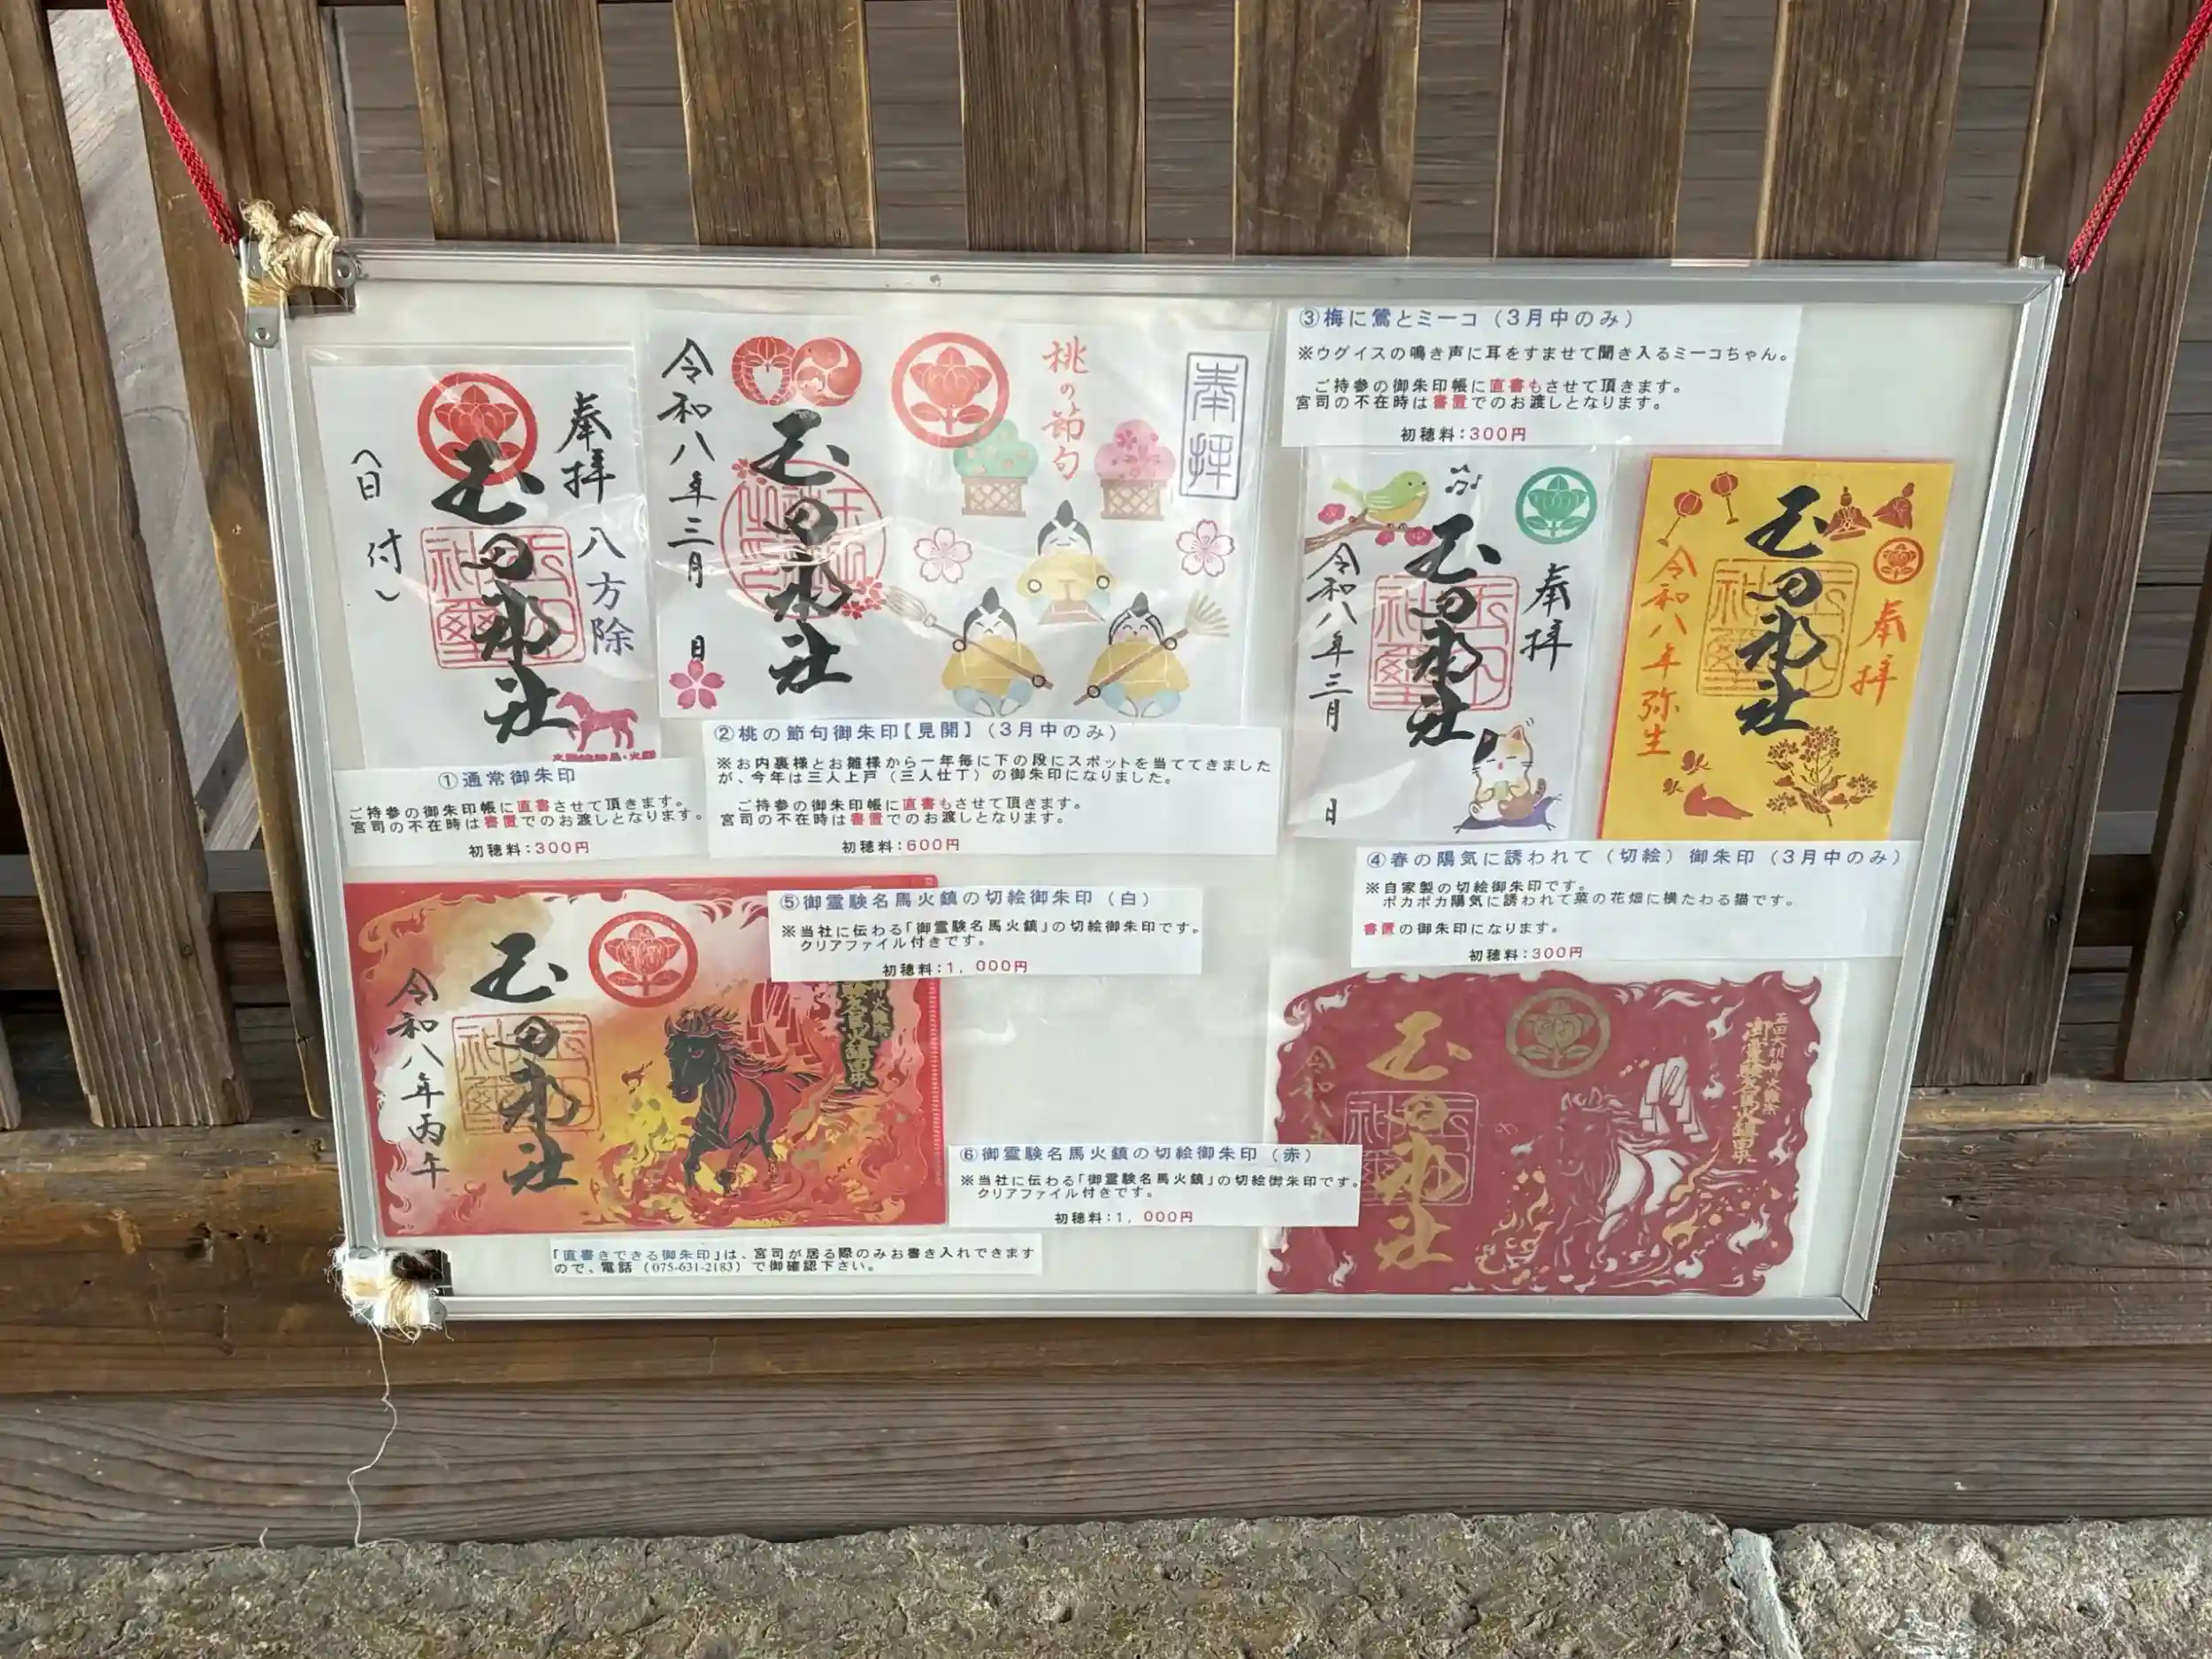 奉拝 八方除
玉田神社
(日付)
①通常御朱印
ご持参の御朱印帳に直書させて頂きます。
宮司の不在時は書置でのお渡しとなります。
初穂料：300円
奉拝
桃の節句
玉田神社
令和八年三月 日
②桃の節句御朱印【見開】（3月中のみ）
※お内裏様とお雛様から一年毎に下の段にスポットを当ててきました
が、今年は三人上戸（三人仕丁）の御朱印になりました。
ご持参の御朱印帳に直書もさせて頂きます。
宮司の不在時は書置でのお渡しとなります。
初穂料：600円
③梅に鶯とミーコ（3月中のみ）
※ウグイスの鳴き声に耳をすませて聞き入るミーコちゃん。
ご持参の御朱印帳に直書もさせて頂きます。
宮司の不在時は書置でのお渡しとなります。
初穂料：300円
奉拝
玉田神社
令和八年三月 日
奉拝
玉田神社
令和八年弥生
④春の陽気に誘われて（切絵）御朱印（3月中のみ）
※自家製の切絵御朱印です。
ポカポカ陽気に誘われて菜の花畑に横たわる猫です。
書置の御朱印になります。
初穂料：300円
⑤御霊験名馬火鎮の切絵御朱印（白）
※当社に伝わる「御霊験名馬火鎮」の切絵御朱印です。
クリアファイル付きです。
初穂料：1，000円
玉田神社
令和八年丙午
⑥御霊験名馬火鎮の切絵御朱印（赤）
※当社に伝わる「御霊験名馬火鎮」の切絵御朱印です。
クリアファイル付きです。
初穂料：1，000円
玉田神社
令和八年
「直書きできる御朱印」は、宮司が居る際のみお書き入れできます
ので、電話（075-631-2183）で御確認下さい。